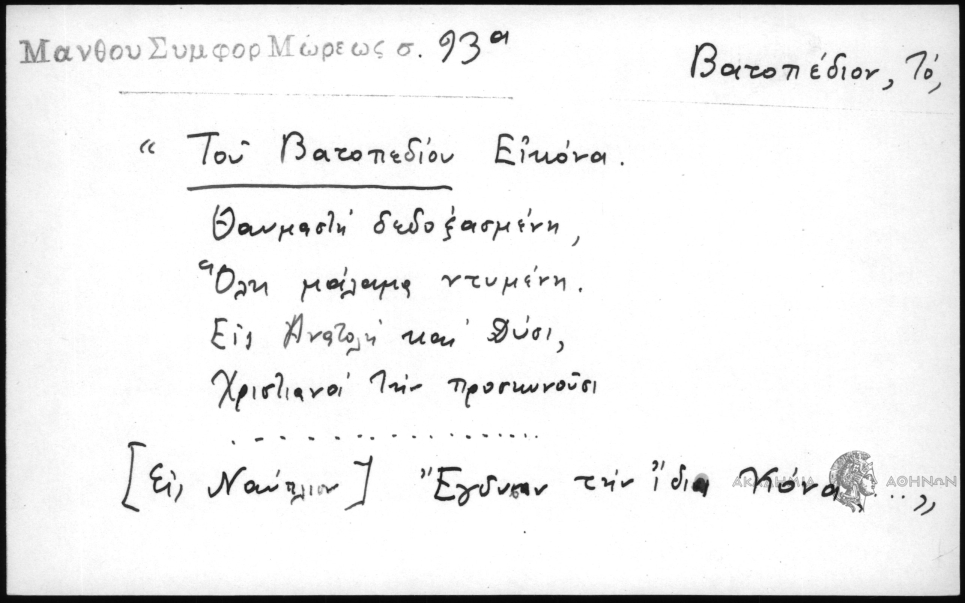 Μανθου Συμφορ Μώρεως σ. 93ᵃ
Βατοπέδιον, Τό,
“ Τοῦ Βατοπεδίου Εἰκόνα.
Θαυμαστή δεδοξασμένη,
Ὅλη μάλαμα ντυμένη.
Εἰς Ἀνατολή καί Δύσι,
Χριστιανοί τήν προσκυνοῦσι
. . . . . . . . . . . . . . . . .
[Εἰς Ναύπλιον] Ἔγδυσαν τήν ἴδια Κόνα ...„
ΑΚΑΔΗΜΙΑ ΑΘΗΝΩΝ